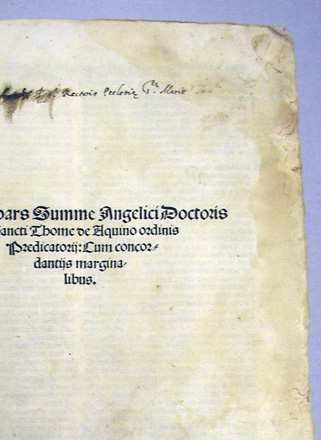 Rectoris Ecclesiæ Stæ Mariæ
pars Summe Angelici Doctoris
Sancti Thome de Aquino ordinis
Predicatorij: Cum concor-
dantijs margina-
libus.